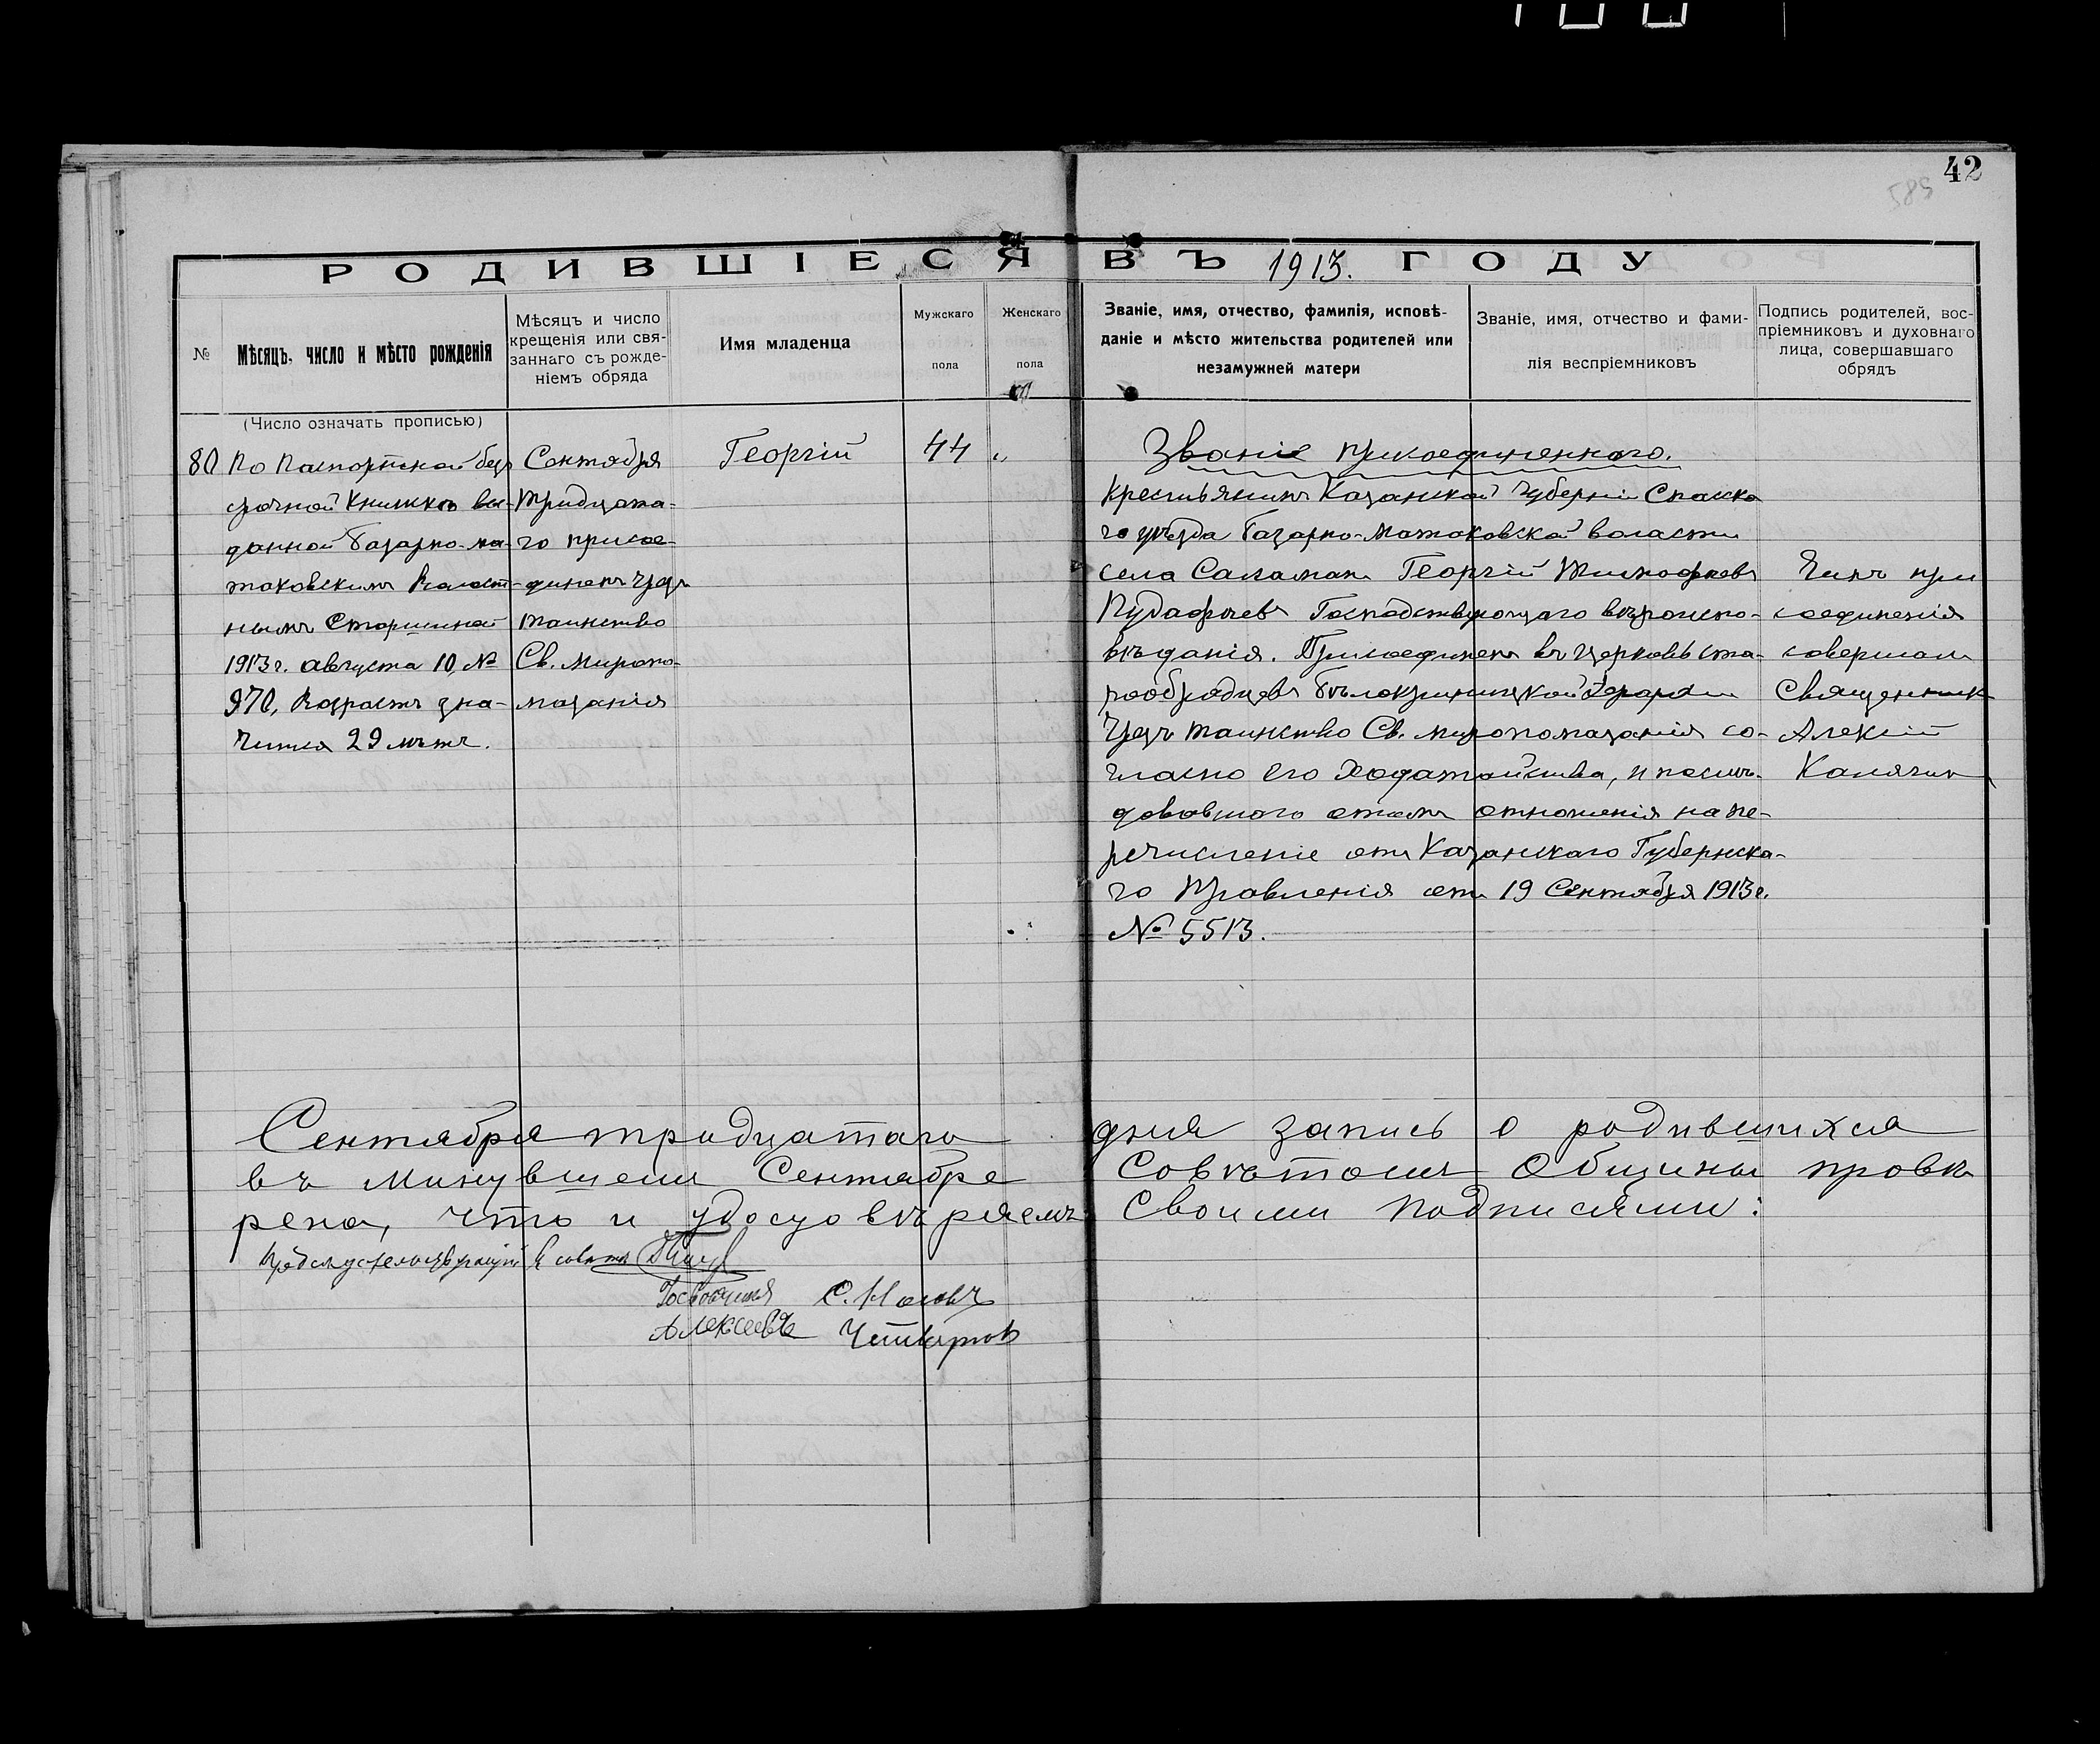 42
585
РОДИВШІЕСЯ ВЪ 1913. ГОДУ
№
Мѣсяцъ, число и мѣсто рожденія
Мѣсяцъ и число
крещенія или свя-
заннаго съ рожде-
ніемъ обряда
Имя младенца
Мужскаго
пола
Женскаго
пола
Званіе, имя, отчество, фамилія, исповѣ-
даніе и мѣсто жительства родителей или
незамужней матери
Званіе, имя, отчество и фами-
лія веспріемниковъ
Подпись родителей, вос-
пріемниковъ и духовнаго
лица, совершавшаго
обрядъ
(Число означать прописью)
80
По Паспортной без
срочной книжкѣ вы-
данной Базарно-ма-
таковскимъ Волост-
нымъ Старшиной
1913 г. августа 10, №
970, Возрастъ зна-
чится 29 лѣтъ.
Сентября
Тридцата-
го присое-
диненъ чрезъ
таинство
Св. Миропо-
мазанія
Георгій
44
"
Званіе присоединеннаго.
Крестьянинъ Казанской губерніи Спасска
го уѣзда Базарно-Матаковской волости
села Саламан Георгій Тимофеевъ
Господствующаго вѣроиспо-
вѣданія. Присоединенъ въ церковь ста-
рообрядцевъ Бѣлокриницкой Іерархіи
Чрезъ таинство Св. миропомазанія со-
гласно его ходатайства, и послѣ-
довавшаго о томъ отношенія на пе-
речисленіе отъ Казанскаго Губернска-
го Правленія отъ 19 Сентября 1913 г.
№ 5513.
Чинъ при
соединенія
совершалъ
Священникъ
Алексій
Калягин
Сентября тридцатаго дня запись о родившихся
въ минувшемъ Сентябре Совѣтомъ Общины провѣ
рена, что и удосуовѣряемъ своими подписями:
Председательствующій въ совѣтѣ
С. Носовъ
Алексеевъ Четвертов